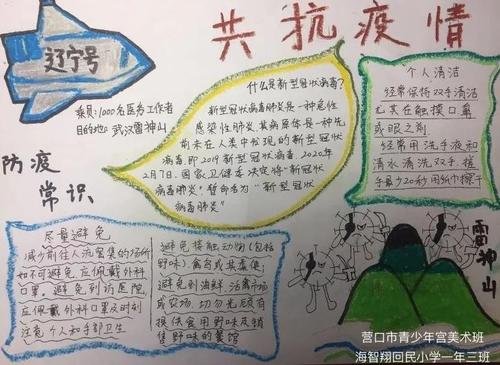 共抗疫情
辽宁号
乘员:1000名医务工作者
目的地:武汉雷神山
什么是新型冠状病毒?
新型冠状病毒肺炎是一种急性
感染性肺炎,其病原体是一种先
前未在人类中发现的新型冠状
病毒,即2019新型冠状病毒。2020年
2月7日,国家卫健委决定将“新型冠状
病毒肺炎”暂命名为“新型冠状
病毒肺炎”
个人清洁
经常保持双手清洁
尤其在触摸口鼻
或眼之前
经常用洗手液和
清水清洗双手,搓
手最少20秒用纸巾擦干
防疫
常识
尽量避免
减少前往人流密集的场所
如不可避免应佩戴外科
口罩,避免到访医院
应佩戴外科口罩及时刻
注意个人和手部卫生
避免接触动物(包括
野味)禽鸟或其粪便;
避免到海鲜、活禽市场
或农场,切勿光顾有
提供食用野味及销
售野味的餐馆
雷神山
营口市青少年宫美术班
海智翔回民小学一年三班